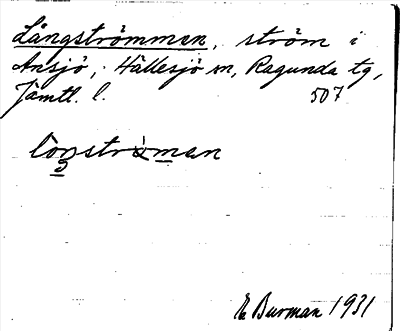 Långströmman, ström i
Ansjö, Hällesjö sn, Ragunda tg,
Jämtl. l. 507
långströman
E Burman 1931